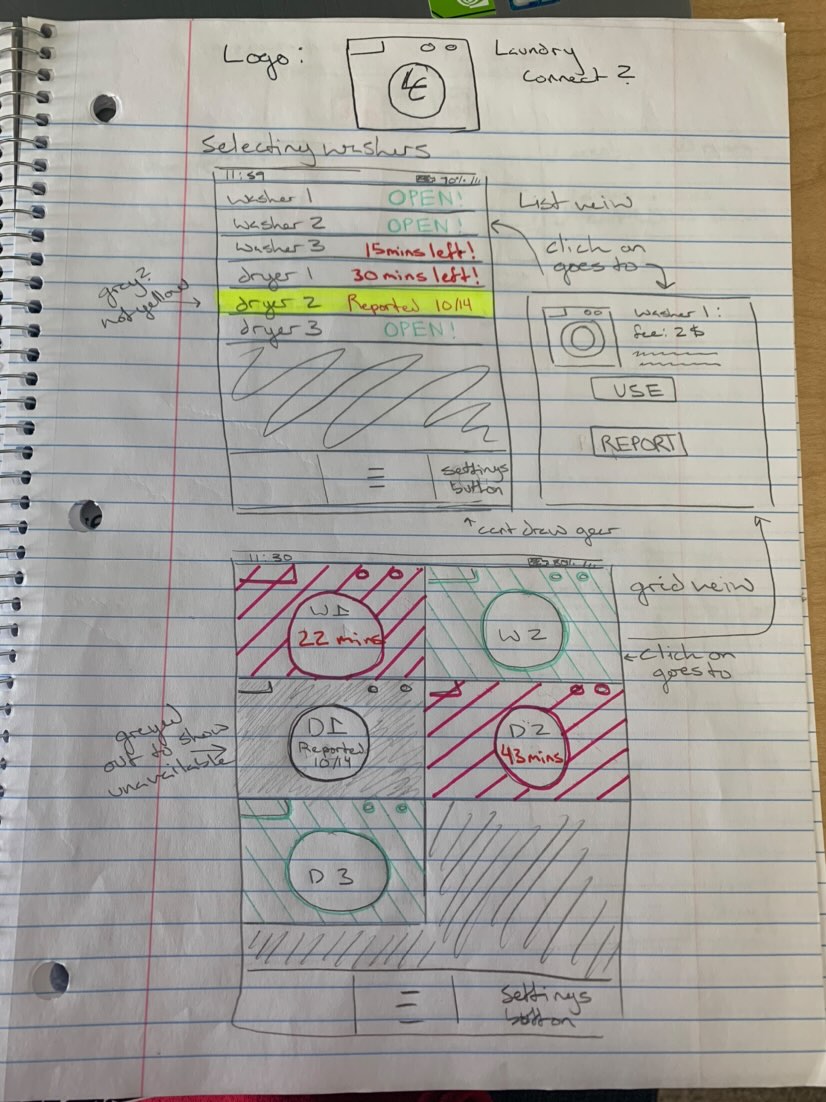 Logo:
LC
Laundry
Connect ?
Selecting washers
11:59
90%
washer 1 OPEN!
washer 2 OPEN!
washer 3 15mins left!
dryer 1 30 mins left!
dryer 2 Reported 10/14
dryer 3 OPEN!
settings
button
List veiw
click on
goes to
gray?
not yellow
washer 1:
fee: 2$
USE
REPORT
cant draw gear
11:30
80%
W1
22 mins
W2
D1
Reported
10/14
D2
43 mins
D3
settings
button
grid veiw
click on
goes to
greyed
out to show
unavailable